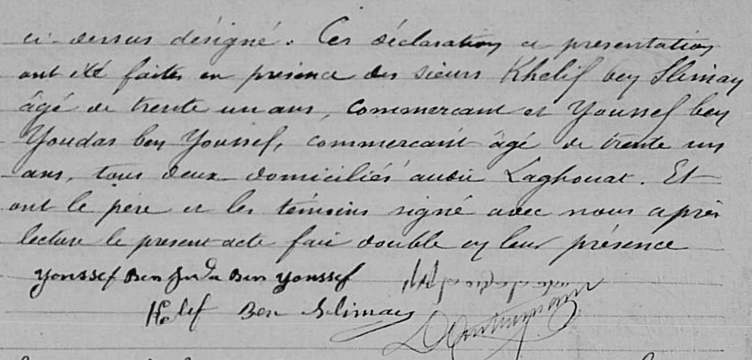 ci-dessus désigné. Ces déclaration et présentation
ont été faites en présence des sieurs Khelif ben Sliman
âgé de trente un ans, commerçant et Youssef ben
Youdas ben Youssef, commerçant âgé de trente un
ans, tous deux domiciliés audit Laghouat. Et
ont le père et les témoins signé avec nous après
lecture le present acte fait double en leur présence
Youssef Ben Juda Ben Youssef
Helef Ben Sliman